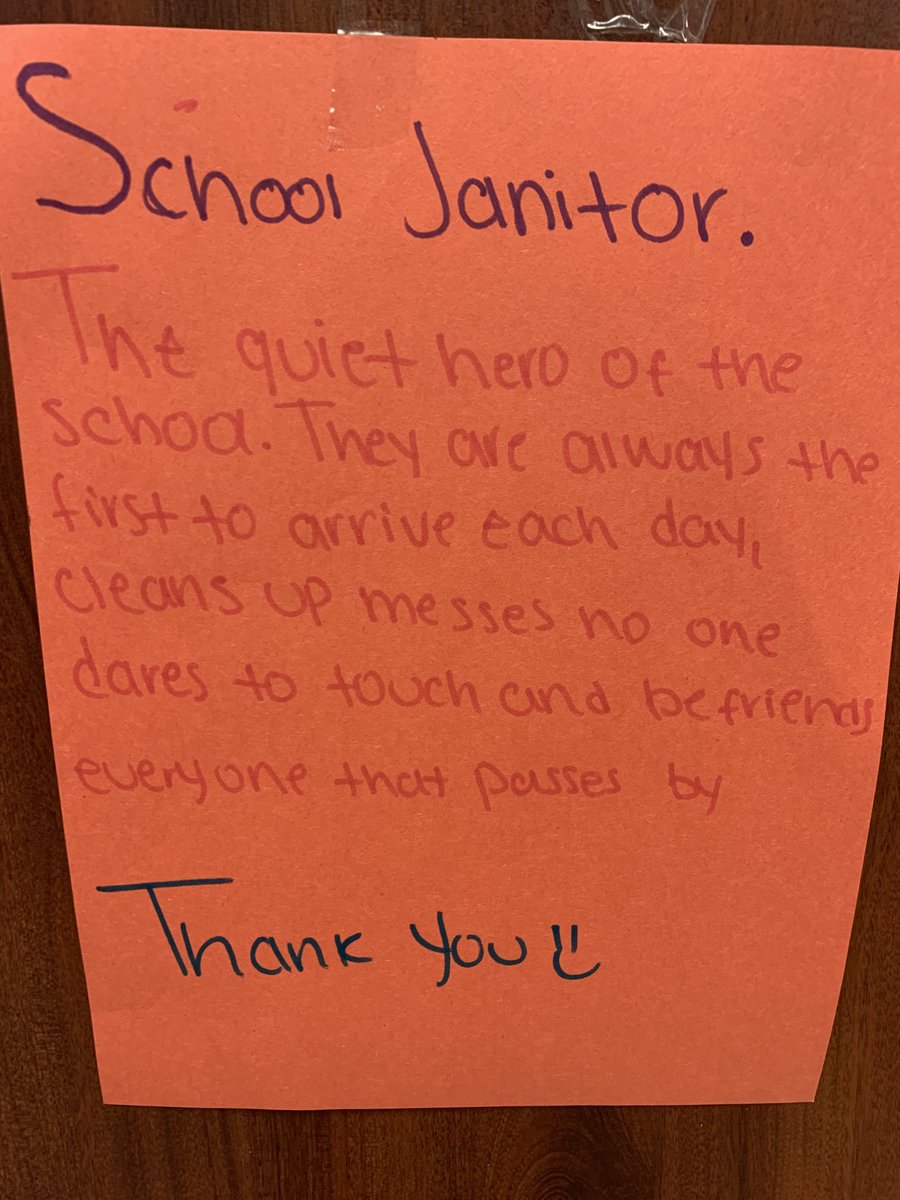 School Janitor.
The quiet hero of the
school. They are always the
first to arrive each day,
cleans up messes no one
dares to touch and befriends
everyone that passes by
Thank you :)